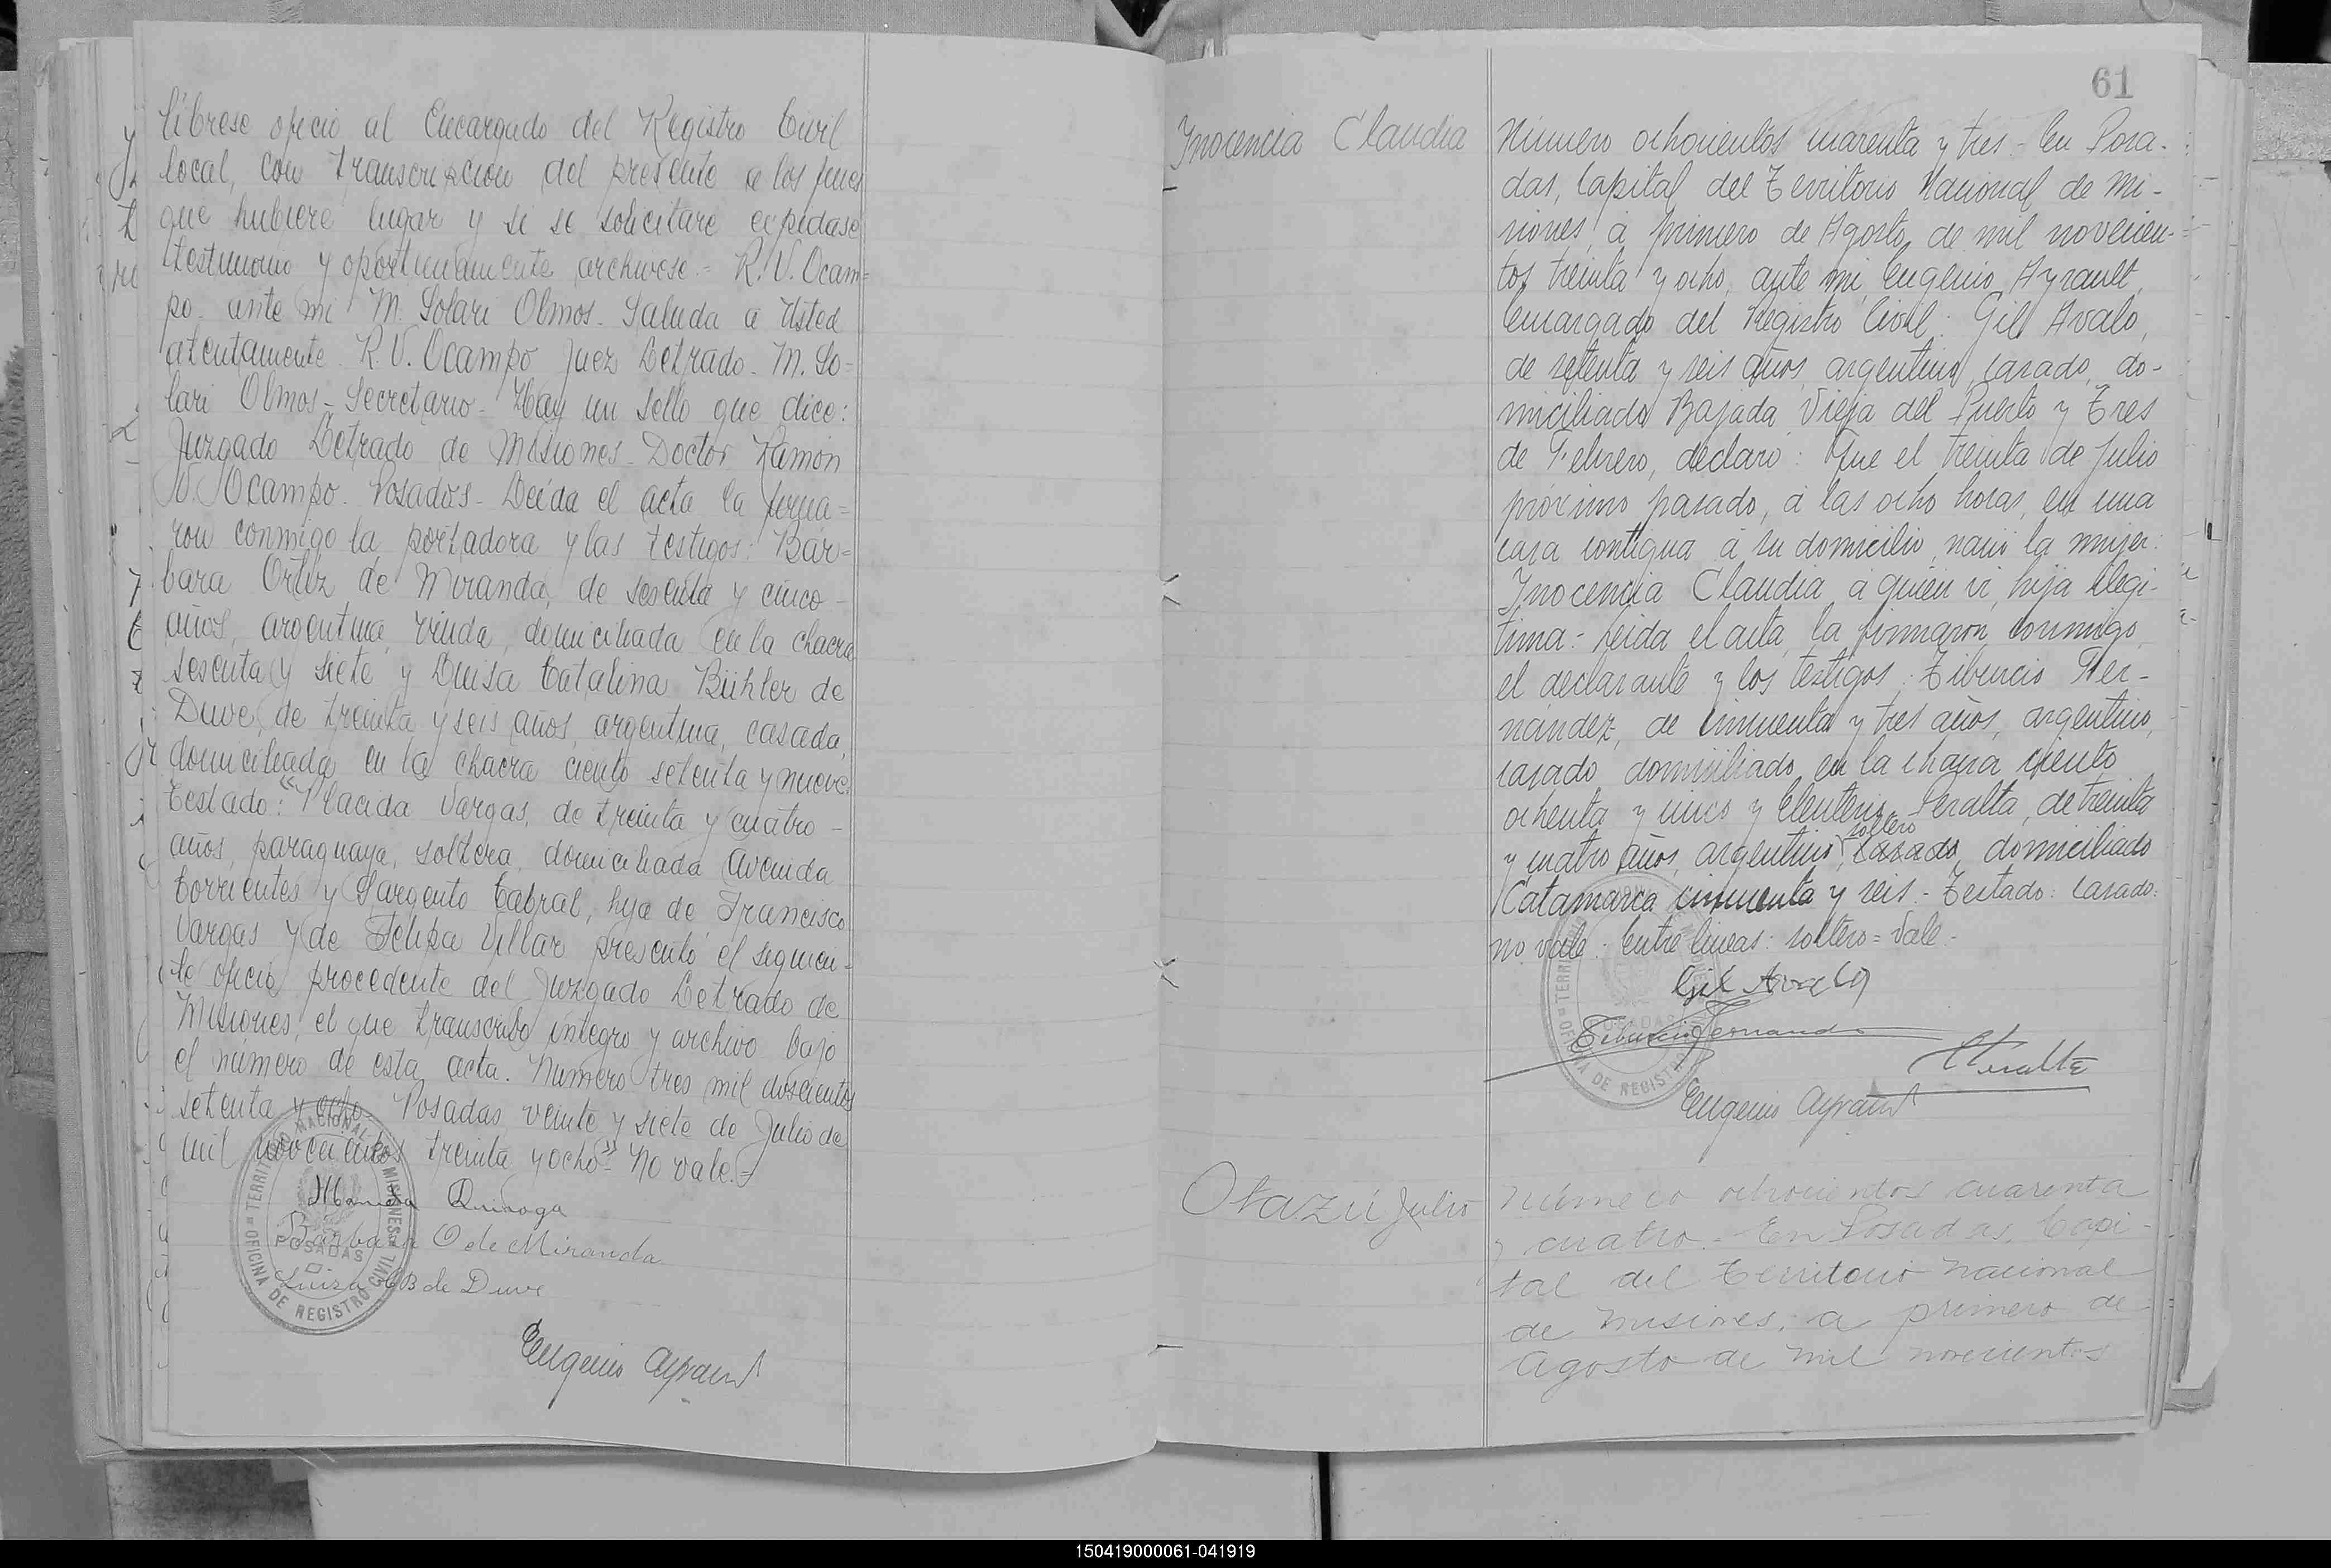 líbrese oficio al Encargado del Registro Civil
local, con transcripcion del presente a los fines
que hubiere lugar y si se solicitare expidase
testimonio y oportunamente archivese.- R. V. Ocam=
po. ante mi M. Solari Olmos. Saluda a Usted
atentamente. R. V. Ocampo Juez Letrado. M. So=
lari Olmos - Secretario - Hay un sello que dice:
Juzgado Letrado de Misiones - Doctor Ramón
V. Ocampo. Posadas - Leída el acta la firma=
ron conmigo la portadora y las testigos: Bár=
bara Ortiz de Miranda, de sesenta y cinco -
años, argentina, viuda, domiciliada en la chacra
sesenta y siete y Luisa Catalina Bühler de
Duve, de treinta y seis años, argentina, casada,
domiciliada en la chacra ciento setenta y nueve.
Testado: "Placida Vargas, de treinta y cuatro -
años, paraguaya, soltera, domiciliada Avenida
Corrientes y Sargento Cabral, hija de Francisco
Vargas y de Felipa Villar presentó el siguien-
te oficio procedente del Juzgado Letrado de
Misiones, el que transcribo íntegro y archivo bajo
el número de esta acta. Numero tres mil doscientos
setenta y ocho. Posadas, veinte y siete de Julio de
mil novecientos treinta y ocho" No vale.=
Quiroga
Bárbara O de Miranda
Luisa C B de Duve
Eugenio Ayrault
TERRITORIO NACIONAL DE MISIONES
POSADAS
OFICINA DE REGISTRO CIVIL
61
Inocencia Claudia
Número ochocientos cuarenta y tres.- En Posa-
das, Capital del Territorio Nacional de Mi-
siones, á primero de Agosto de mil novecien-
tos treinta y ocho, ante mi, Eugenio Ayrault,
Encargado del Registro Civil: Gil Avalo,
de setenta y seis años, argentino, casado, do-
miciliado Bajada Vieja del Puerto y Tres
de Febrero, declaró: Que el treinta de Julio
próximo pasado, á las ocho horas, en una
casa contigua á su domicilio, nació la mujer:
Inocencia Claudia, á quién ví, hija ilegí-
tima.- Leída el acta, la firmaron conmigo,
el declarante y los testigos: Tiburcio Fer-
nández, de cincuenta y tres años, argentino,
casado, domiciliado en la chacra ciento
ochenta y cinco y Eleuterio Peralta, de treinta
soltero
y cuatro años, argentino, casado, domiciliado
Catamarca cincuenta y seis.- Testado: casado:
no vale: Entre líneas: soltero = Vale.-
Gil Avalo
Tiburcio Fernandez
E Peralta
Eugenio Ayrault
OFICINA DE REGISTRO
Otazú Julio
Número ochocientos cuarenta
y cuatro.- En Posadas, Capi-
tal del Territorio Nacional
de Misiones, a primero de
Agosto de mil novecientos
150419000061-041919